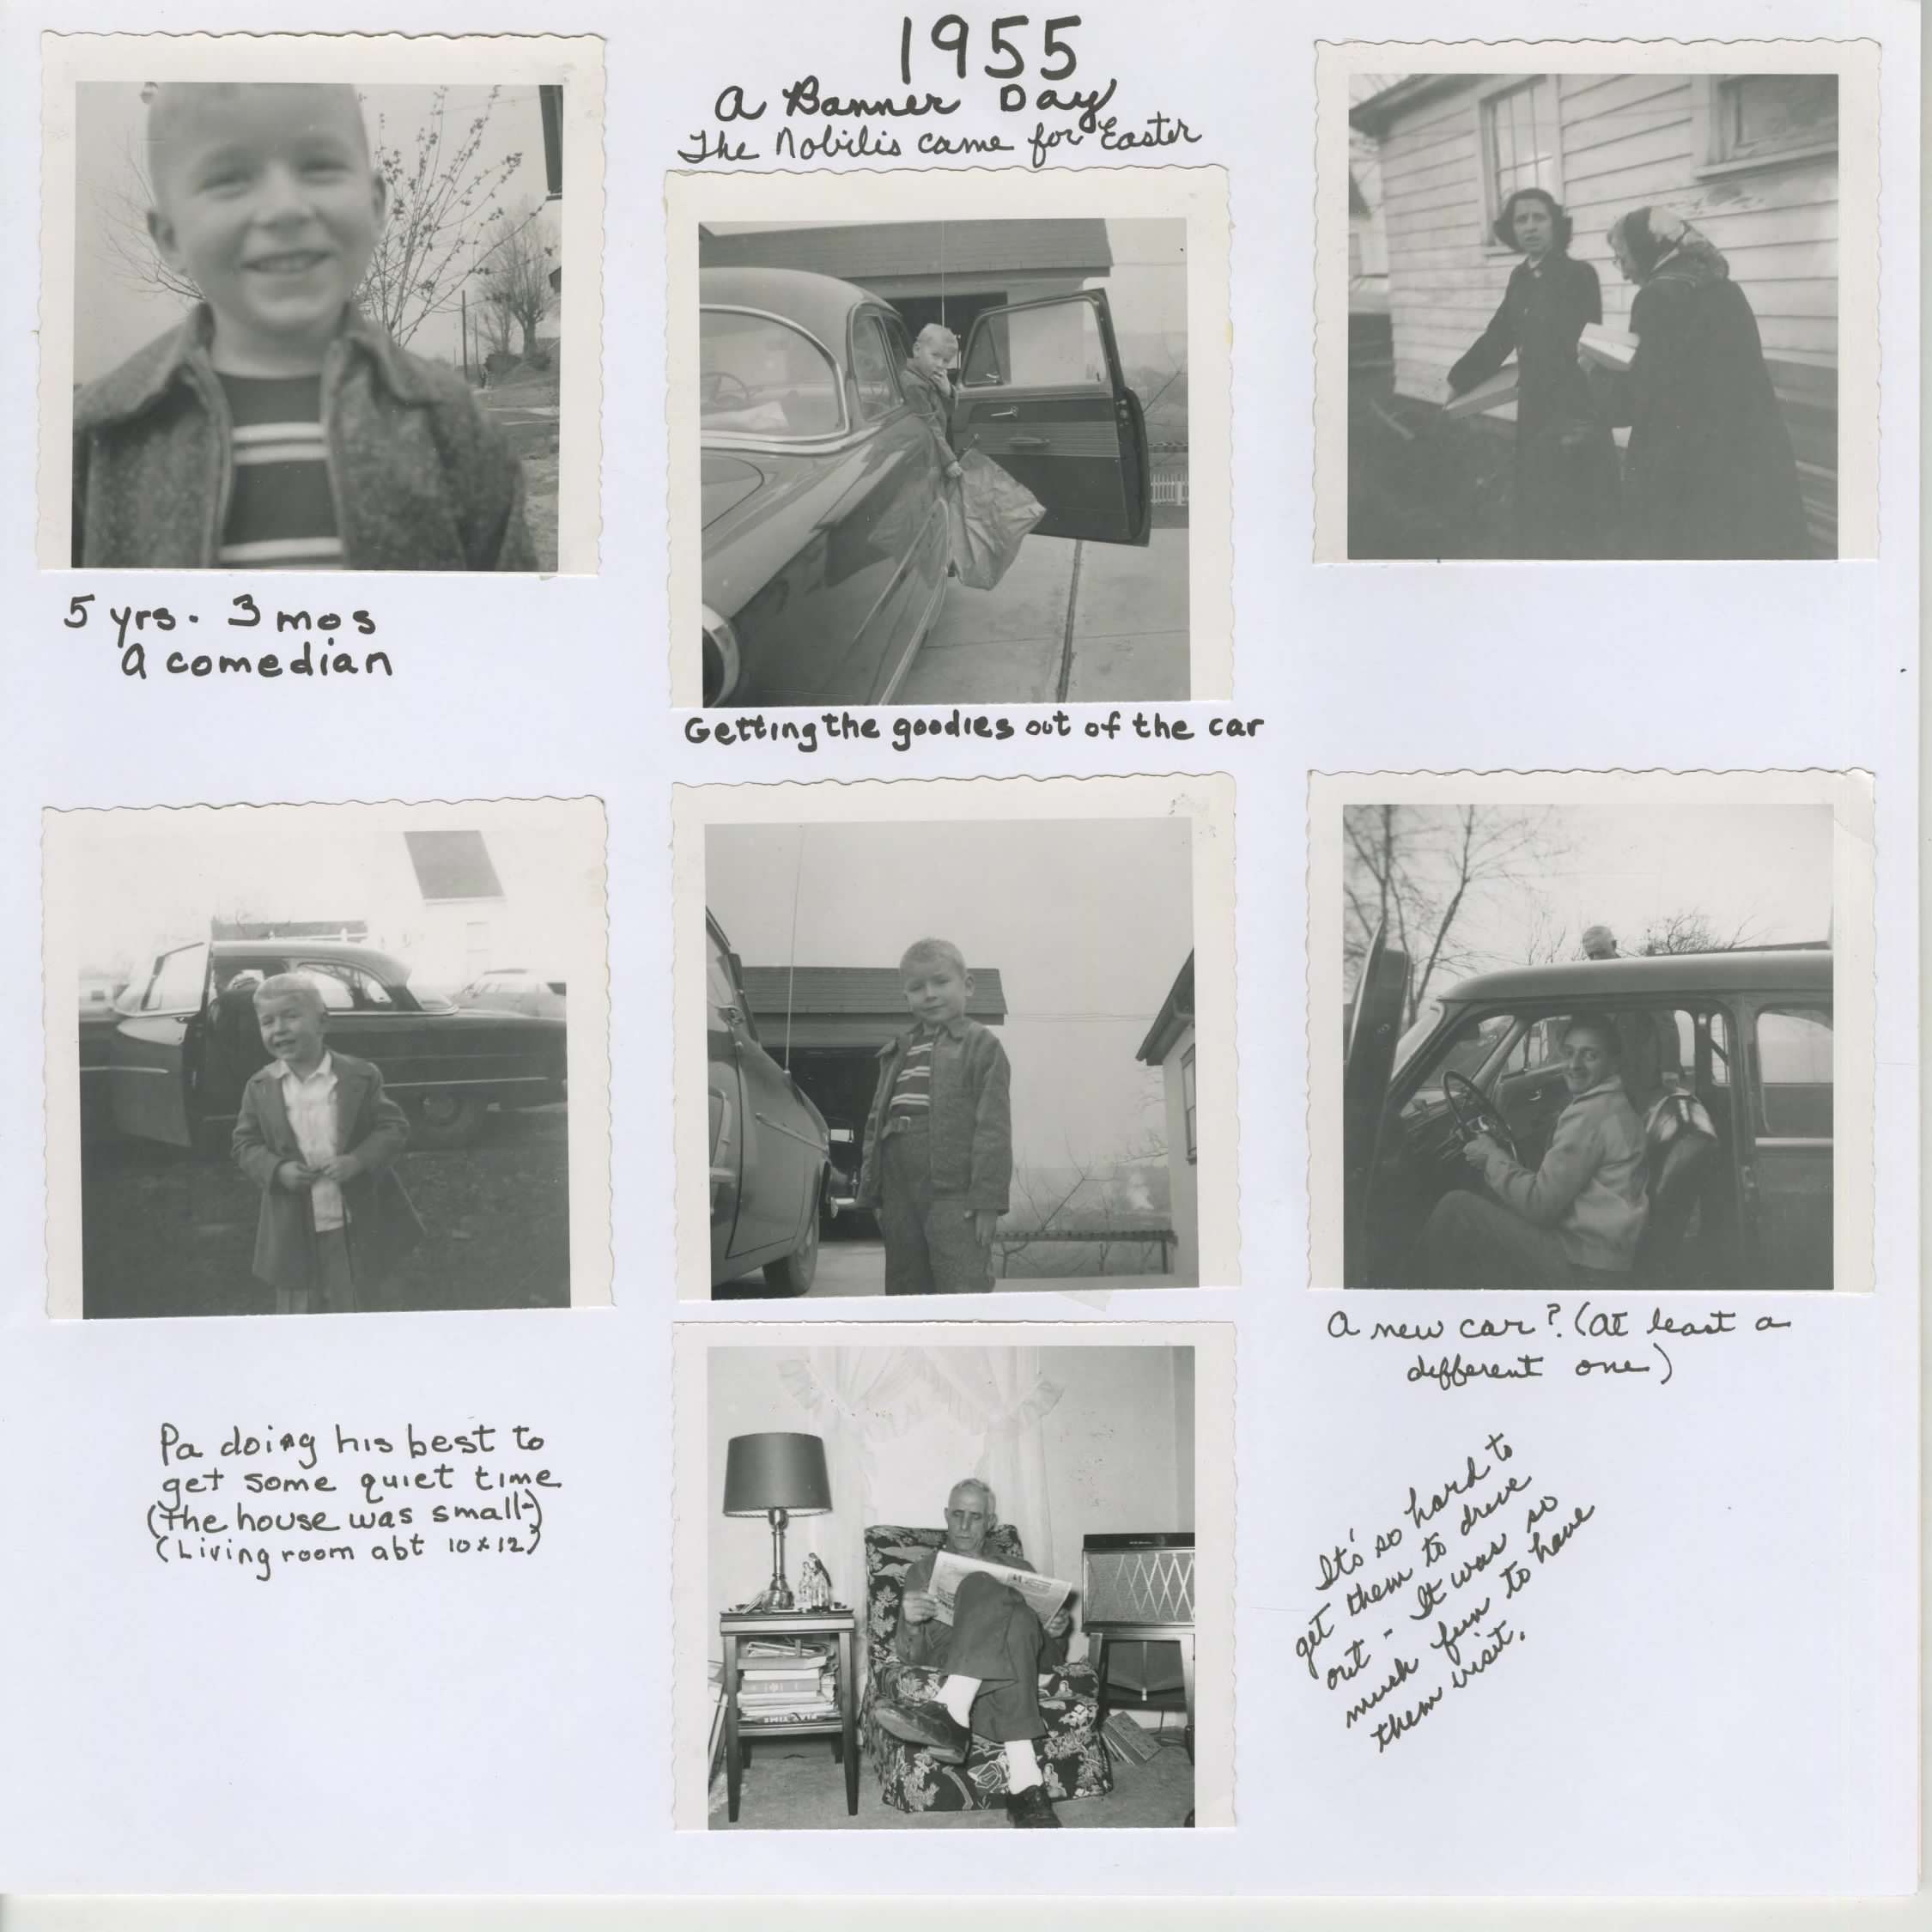 1955
A Banner Day
The Nobilis came for Easter
5 yrs. 3 mos
A comedian
Getting the goodies out of the car
A new car? (at least a
different one)
Pa doing his best to
get some quiet time
(the house was small-)
(Living room abt 10x12)
It's so hard to
get them to drive
out - It was so
much fun to have
them visit.
PLAY TIME